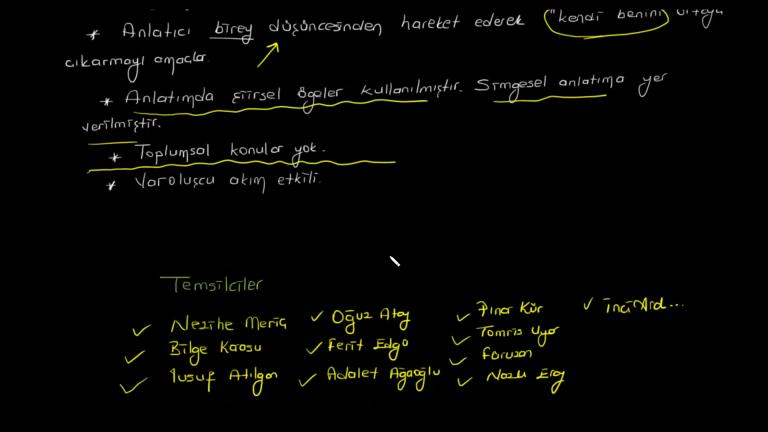 * Anlatıcı birey düşüncesinden hareket ederek "kendi benini ortaya
çıkarmayı amaçlar.
* Anlatımda şiirsel ögeler kullanılmıştır. Simgesel anlatıma yer
verilmiştir.
* Toplumsal konular yok.
* Varoluşcu akım etkili.
Temsilciler
✓ Nezihe Meriç ✓ Oğuz Atay ✓ Pınar Kür ✓ İnci Ard...
✓ Bilge Karasu ✓ Ferit Edgü ✓ Tomris Uyar
✓ Yusuf Atılgan ✓ Adalet Ağaoğlu ✓ Füruzan
✓ Nazlı Eray